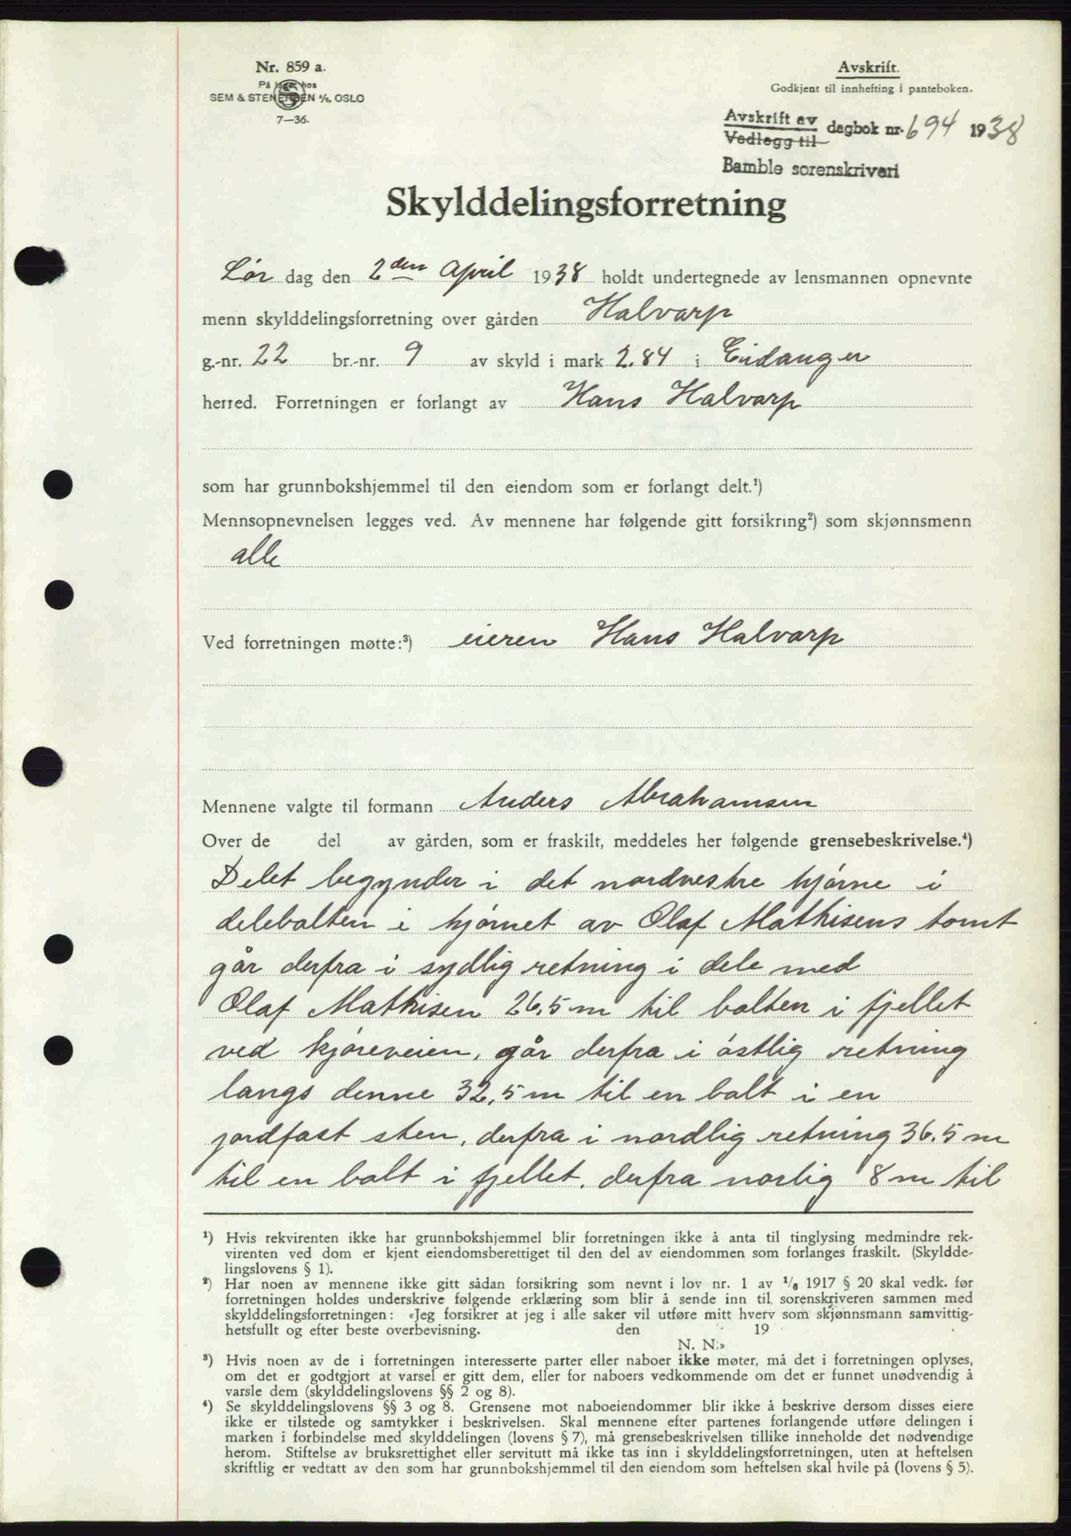 Nr. 859 a.
På lager hos
SEM & STENERSEN A/S. OSLO
7—36.
Avskrift.
Godkjent til innhefting i panteboken.
Avskrift av
Vedlegg til
dagbok nr. 694 1938
Bamble sorenskriveri
Skylddelingsforretning
Lør dag den 2den April 1938 holdt undertegnede av lensmannen opnevnte
menn skylddelingsforretning over gården Halvarp
g.-nr. 22 br.-nr. 9 av skyld i mark 2.84 i Eidanger
herred. Forretningen er forlangt av Hans Halvarp
som har grunnbokshjemmel til den eiendom som er forlangt delt.¹)
Mennsopnevnelsen legges ved. Av mennene har følgende gitt forsikring²) som skjønnsmenn
alle
Ved forretningen møtte:³) eieren Hans Halvarp
Mennene valgte til formann Anders Abrahamsen
Over de del av gården, som er fraskilt, meddeles her følgende grensebeskrivelse.⁴)
Delet begynder i det nordvestre hjørne i
delebolten i hjørnet av Olaf Mathisens tomt
går derfra i sydlig retning i dele med
Olaf Mathisen 26,5 m til bolten i fjellet
ved kjøreveien, går derfra i østlig retning
langs denne 32,5 m til en bolt i en
jordfast sten, derfra i nordlig retning 36.5 m
til en bolt i fjellet. derfra norlig 8 m til
¹) Hvis rekvirenten ikke har grunnbokshjemmel blir forretningen ikke å anta til tinglysing medmindre rek-
virenten ved dom er kjent eiendomsberettiget til den del av eiendommen som forlanges fraskilt. (Skyldde-
lingslovens § 1).
²) Har noen av mennene ikke gitt sådan forsikring som nevnt i lov nr. 1 av 1/6 1917 § 20 skal vedk. før
forretningen holdes underskrive følgende erklæring som blir å sende inn til sorenskriveren sammen med
skylddelingsforretningen: «Jeg forsikrer at jeg i alle saker vil utføre mitt hverv som skjønnsmann samvittig-
hetsfullt og efter beste overbevisning. den 19
N. N.»
³) Hvis noen av de i forretningen interesserte parter eller naboer ikke møter, må det i forretningen oplyses,
om det er godtgjort at varsel er gitt dem, eller for naboers vedkommende om det er funnet unødvendig å
varsle dem (skylddelingslovens §§ 2 og 8).
⁴) Se skylddelingslovens §§ 3 og 8. Grensene mot naboeiendommer blir ikke å beskrive dersom disses eiere
ikke er tilstede og samtykker i beskrivelsen. Skal mennene efter partenes forlangende utføre delingen i
marken i forbindelse med skylddelingen (lovens § 7), må grensebeskrivelsen tillike inneholde det nødvendige
herom. Stiftelse av bruksrettighet eller servitutt må ikke tas inn i skylddelingsforretningen, uten at heftelsen
skriftlig er vedtatt av den som har grunnbokshjemmel til den eiendom som heftelsen skal hvile på (lovens § 5).